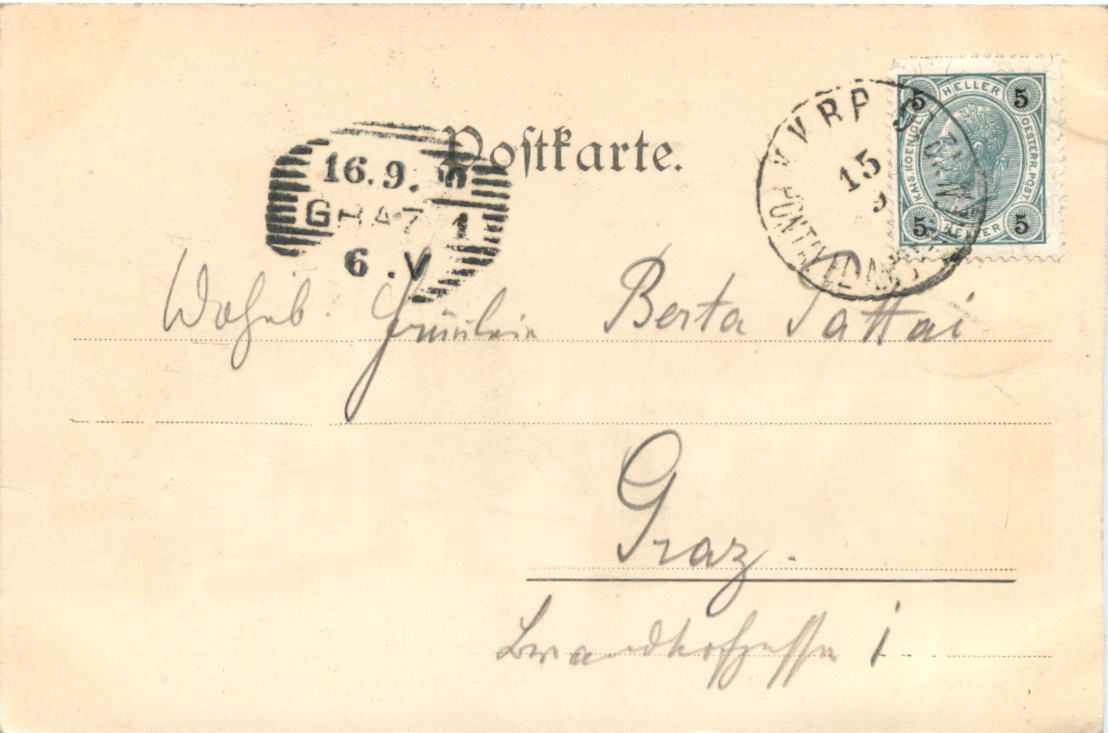 Postkarte.
16.9.
GRAZ 1
6.V
15
9
5 HELLER 5
KAIS. KOENIGL. OESTERR. POST.
5 HELLER 5
Wohlgeb. Fräulein Berta Pattai
Graz.
Brandhofgasse 1